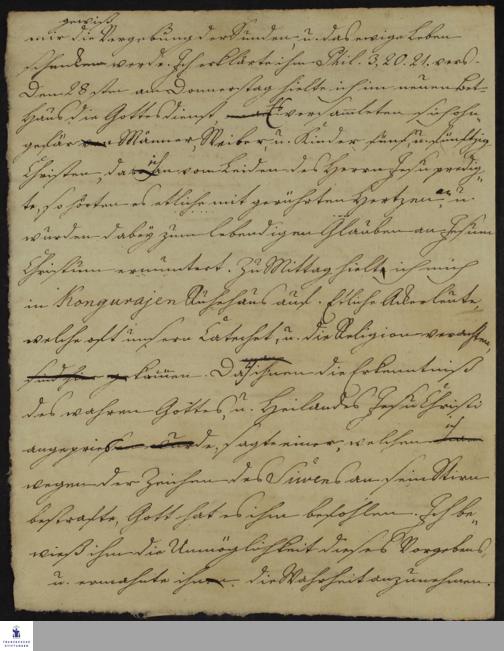 gewiß
mir die Vergebung der Sünden, u. das ewige Leben
schenken werde. Ich erklärte ihm Phil. 3, 20. 21. vers.
Den 28sten am Donnerstag hielte ich im neuen Bet-
Hauß die Gottesdienst, Es versamleten sich ohn-
gefär Männer, Weiber, u. Kinder fünf u. funfzig
Christen, da ich vom Leiden des Herrn Jesu predig-
te, so hörten es etliche mit gerührten Hertzen an, u.
wurden dabey zum lebendigen Glauben an Jesum
Christum ermuntert. Zu Mittag hielte ich mich
in Kongurajen Ruhehaus auf. Etliche Ackerleute,
welche oft unsern Catechet, u. die Religion verachten,
kamen. Da ihnen die Erkenntniß
des wahren Gottes, u. Heilandes Jesu Christi
angepriesen, sagte einer, welchen ich
wegen der Zeichen des Tüwens an sein Stirn
bestrafte, Gott hat es ihm befohlen. Ich be-
wieß ihm die Unmöglichkeit dieses Vorgebens,
u. ermahnte ihn die Wahrheit anzunehmen.
FRANCKESCHE
STIFTUNGEN